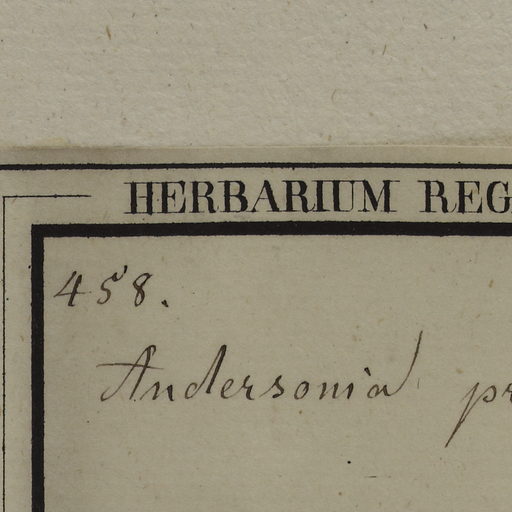 HERBARIUM REG
458.
Andersonia pr